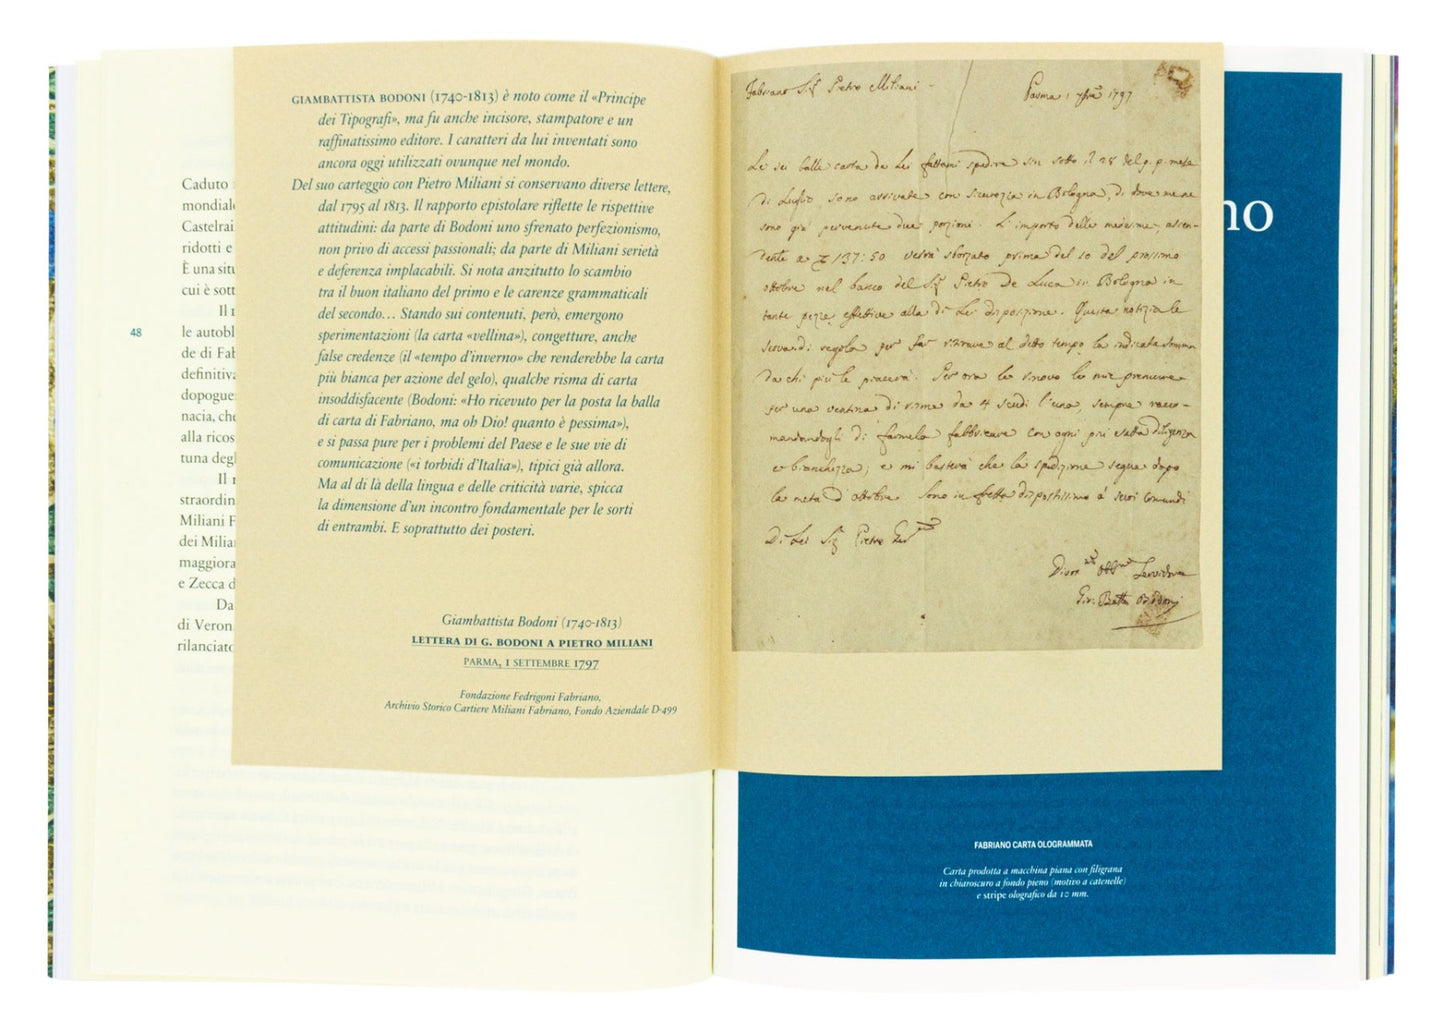 Caduto
mondiale
Castelrai
ridotti e
È una situ
cui è sott
Il
le autobl
de di Fab
definitiva
dopogue
nacia, che
alla ricos
tuna degl
Il
straordin
Miliani F
dei Milia
maggiora
e Zecca d
Da
di Veron
rilanciato
48
GIAMBATTISTA BODONI (1740-1813) è noto come il «Principe
dei Tipografi», ma fu anche incisore, stampatore e un
raffinatissimo editore. I caratteri da lui inventati sono
ancora oggi utilizzati ovunque nel mondo.
Del suo carteggio con Pietro Miliani si conservano diverse lettere,
dal 1795 al 1813. Il rapporto epistolare riflette le rispettive
attitudini: da parte di Bodoni uno sfrenato perfezionismo,
non privo di accessi passionali; da parte di Miliani serietà
e deferenza implacabili. Si nota anzitutto lo scambio
tra il buon italiano del primo e le carenze grammaticali
del secondo... Stando sui contenuti, però, emergono
sperimentazioni (la carta «vellina»), congetture, anche
false credenze (il «tempo d'inverno» che renderebbe la carta
più bianca per azione del gelo), qualche risma di carta
insoddisfacente (Bodoni: «Ho ricevuto per la posta la balla
di carta di Fabriano, ma oh Dio! quanto è pessima»),
e si passa pure per i problemi del Paese e le sue vie di
comunicazione («i torbidi d'Italia»), tipici già allora.
Ma al di là della lingua e delle criticità varie, spicca
la dimensione d'un incontro fondamentale per le sorti
di entrambi. E soprattutto dei posteri.
Giambattista Bodoni (1740-1813)
LETTERA DI G. BODONI A PIETRO MILIANI
PARMA, 1 SETTEMBRE 1797
Fondazione Fedrigoni Fabriano,
Archivio Storico Cartiere Miliani Fabriano, Fondo Aziendale D-499
Fabriano Sig. Pietro Miliani
Parma 1 7bre 1797
Le sei balle carta da Lei fattami spedire sin sotto il 28 del p. p. mese
di Luglio, sono arrivate con sicurezza in Bologna, di dove me ne
sono già pervenute due porzioni. L'importo delle medesime, ascen-
dente a 137:50 verrà sborzato prima del 10 del prossimo
ottobre nel banco del Sig. Pietro De Luca in Bologna in
tante pezze effettive alla di Lei disposizione. Questa notizia le
serva di regola per far ritirare al detto tempo la indicata somma
da chi più le piacerà. Per ora le rinovo le mie premure
per una ventina di risme da 4 scudi l'una, sempre racco-
mandandogli di farmela fabbricare con ogni più esatta diligenza
e bianchezza, e mi basterà che la spedizione segua dopo
la metà d'ottobre. Sono in fretta dispostissimo a' suoi comandi
Di Lei Sig. Pietro
Servidore
Gio. Batta Bodoni
no
FABRIANO CARTA OLOGRAMMATA
Carta prodotta a macchina piana con filigrana
in chiaroscuro a fondo pieno (motivo a catenelle)
e stripe olografico da 10 mm.